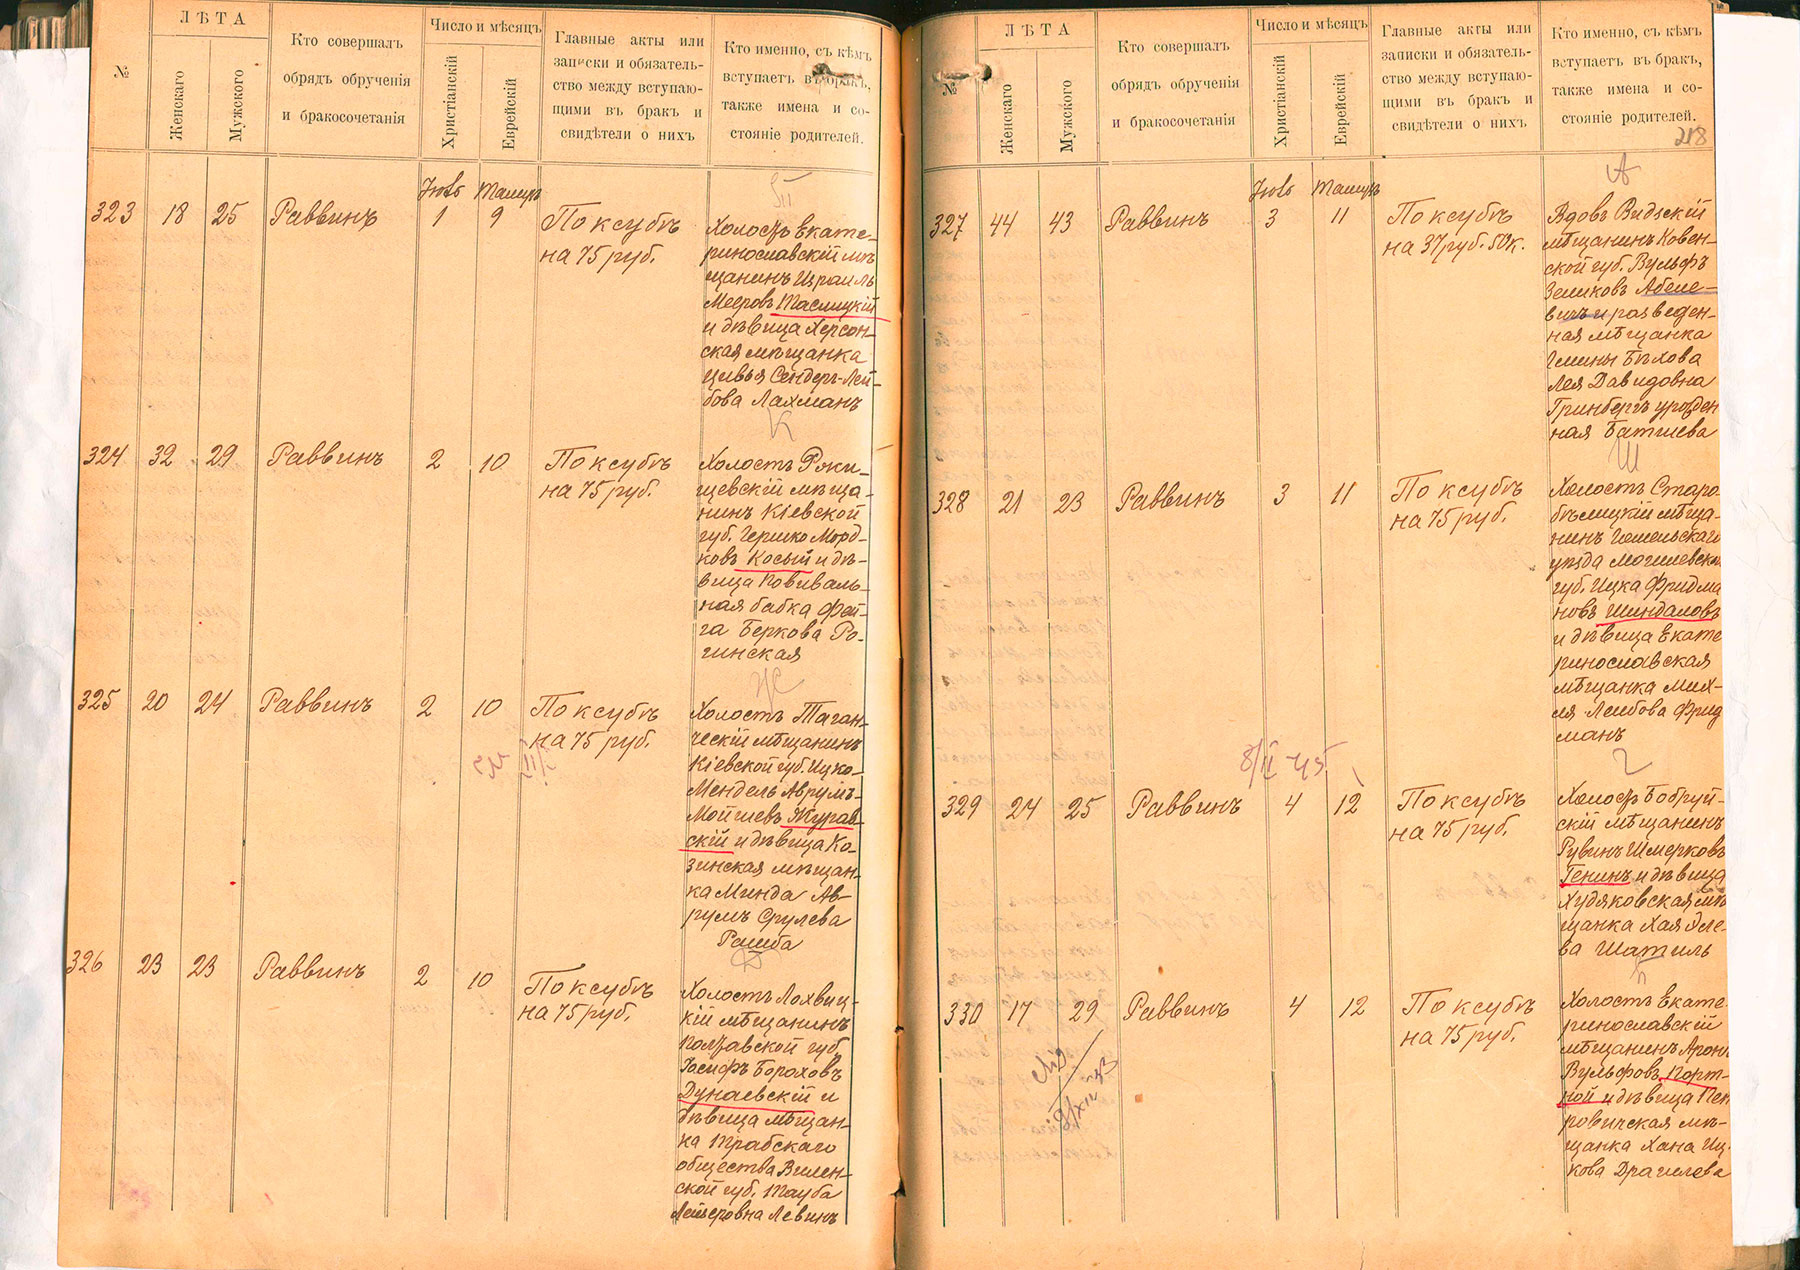 №
ЛѢТА
Женскаго
Мужского
Кто совершалъ
обрядъ обрученія
и бракосочетанія
Число и мѣсяцъ
Христіанскій
Еврейскій
Главные акты или
записки и обязатель-
ство между вступаю-
щими въ бракъ и
свидѣтели о нихъ
Кто именно, съ кѣмъ
вступаетъ въ бракъ,
также имена и со-
стояніе родителей.
323 18 25 Раввинъ
Іюль Тамузъ
1 9
По ксубѣ
на 75 руб.
Холостъ Екате-
ринославскій мѣ
щанинъ Израиль
Мееровъ Таслицкій
и дѣвица Херсон-
ская мѣщанка
Цивья Сендеръ-Лей-
бова Лахманъ
К
324 32 29 Раввинъ 2 10
По ксубѣ
на 75 руб.
Холостъ Роки-
щевскій мѣща-
нинъ Кіевской
губ. Гершко Морд-
ковъ Косый и дѣ-
вица повиваль-
ная бабка Фей-
га Беркова Ро-
гинская
Ж
325 20 24 Раввинъ 2 10
По ксубѣ
на 75 руб.
Холостъ Таган-
ческій мѣщанинъ
Кіевской губ. Ицко-
Мендель Аврумъ-
Мойшевъ Журав-
скій и дѣвица Ко-
зинская мѣщан-
ка Минда Ав-
румъ Срулева
Рашба
Д
326 23 23 Раввинъ 2 10
По ксубѣ
на 75 руб.
Холостъ Лохвиц-
кій мѣщанинъ
Полтавской губ.
Іосифъ Бороховъ
Дунаевскій и
дѣвица мѣщан-
ка Трабскаго
общества Вилен-
ской губ. Тауба
Лейзеровна Левинъ
№
ЛѢТА
Женскаго
Мужского
Кто совершалъ
обрядъ обрученія
и бракосочетанія
Число и мѣсяцъ
Христіанскій
Еврейскій
Главные акты или
записки и обязатель-
ство между вступаю-
щими въ бракъ и
свидѣтели о нихъ
Кто именно, съ кѣмъ
вступаетъ въ бракъ,
также имена и со-
стояніе родителей.
218
А
327 44 43 Раввинъ
Іюль Тамузъ
3 11
По ксубѣ
на 37 руб. 50 к.
Вдовъ Видзскій
мѣщанинъ Ковен-
ской губ. Вульфъ
Зеликовъ Абеле-
вичъ и разведен-
ная мѣщанка
Лея Давидовна
Гринбергъ урожден
ная Батшева
Ш
328 21 23 Раввинъ 3 11
По ксубѣ
на 75 руб.
Холостъ Старо-
бѣлицкій мѣща-
нинъ Гомельскаго
уѣзда Могилевской
губ. Ицка Фридма
новъ Шиндаловъ
и дѣвица Екате
ринославская
мѣщанка Мих-
ля Лейбова Фрид
манъ
Г
329 24 25 Раввинъ 4 12
По ксубѣ
на 75 руб.
Холостъ Бобруй-
скій мѣщанинъ
Рувинъ Шмерковъ
Генинъ и дѣвица
Худяковская мѣ
щанка Хая Эле-
ва Шатиль
П
330 17 29 Раввинъ 4 12
По ксубѣ
на 75 руб.
Холостъ Екате
ринославскій
мѣщанинъ Аронъ
Вульфовъ Порт-
ной и дѣвица Пет
ровичская мѣ-
щанка Хана Иц-
кова Драгилева